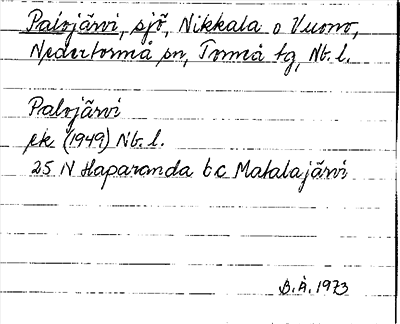 Palojärvi, sjö, Nikkala o Vuono,
Nedertorneå sn, Torneå tg, Nb. l.
Palojärvi
ek (1949) Nb. l.
25 N Haparanda b c Matalajärvi
B.Å. 1973